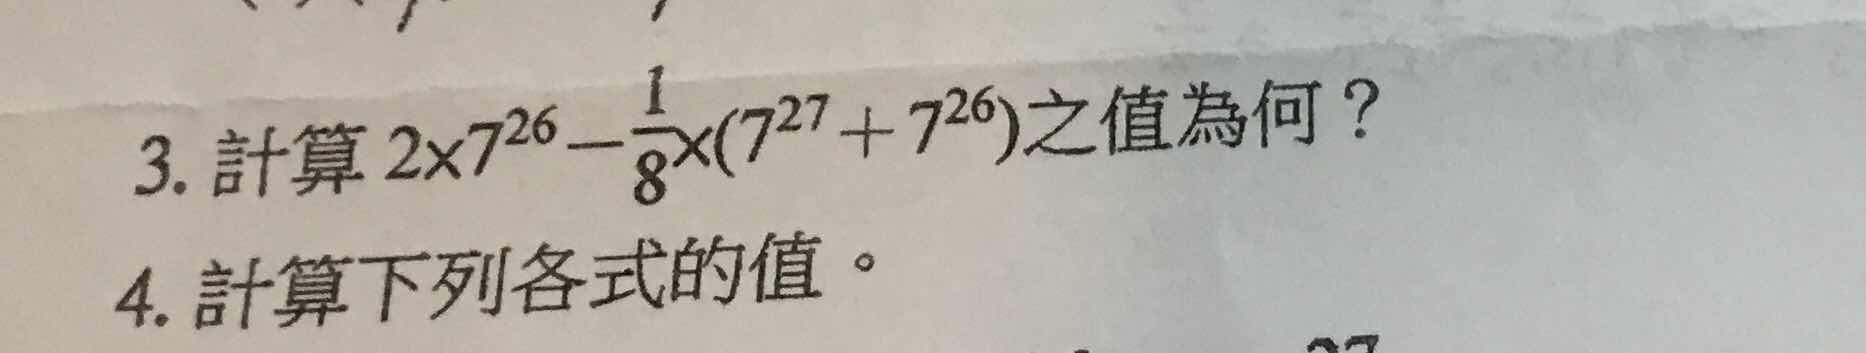 3. 計算 2×7²⁶－1/8×(7²⁷＋7²⁶)之值為何？
4. 計算下列各式的值。
27